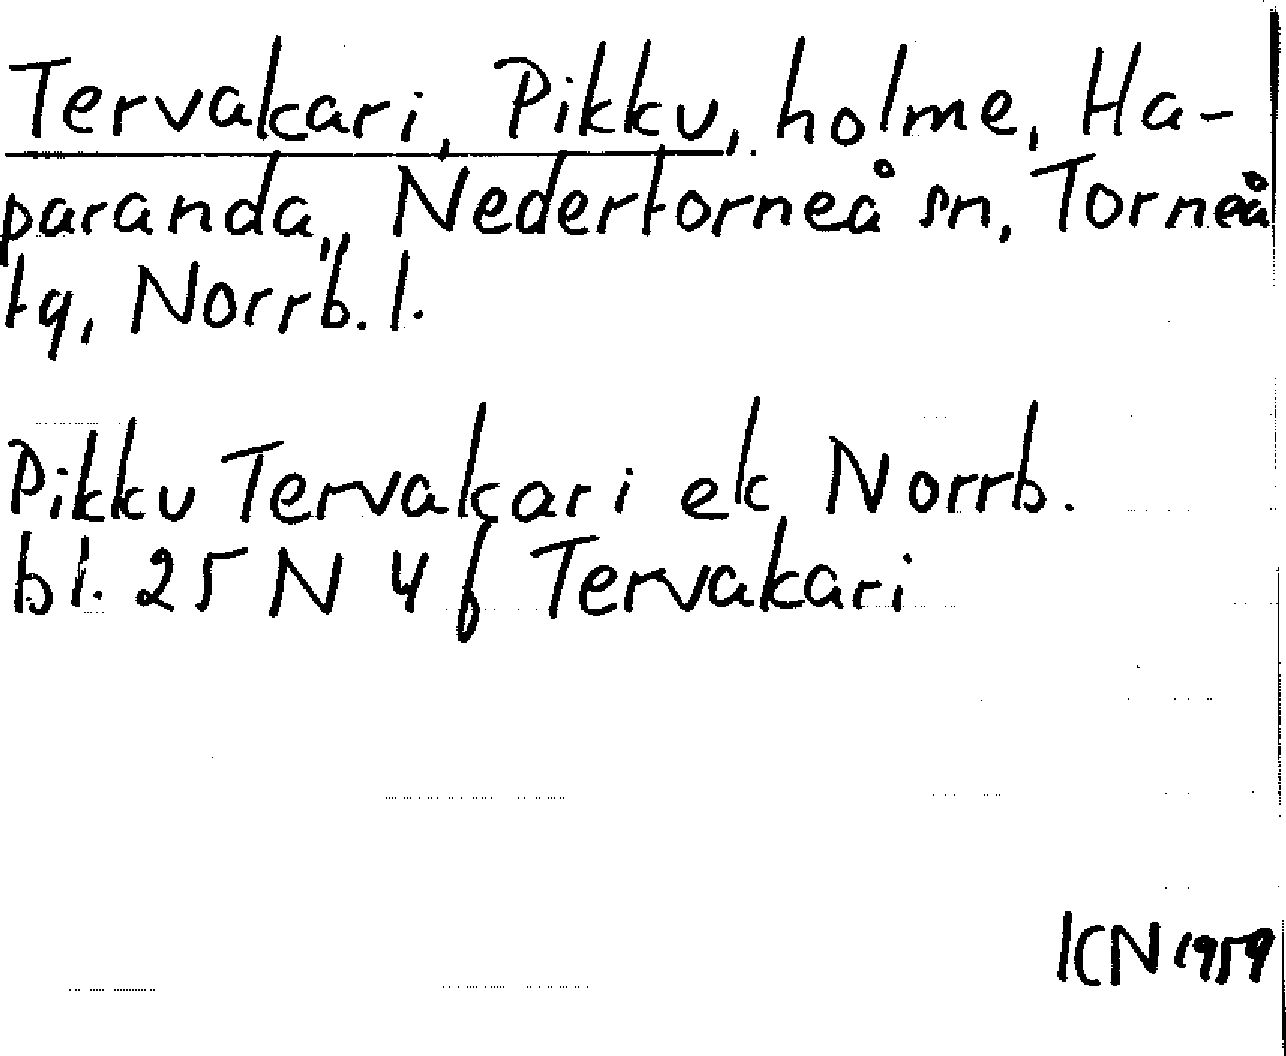 Tervakari, Pikku, holme, Ha-
paranda, Nedertorneå sn, Torneå
tg, Norrb. l.
Pikku Tervakari ek Norrb.
bl. 25 N 4 f Tervakari
KN 1959